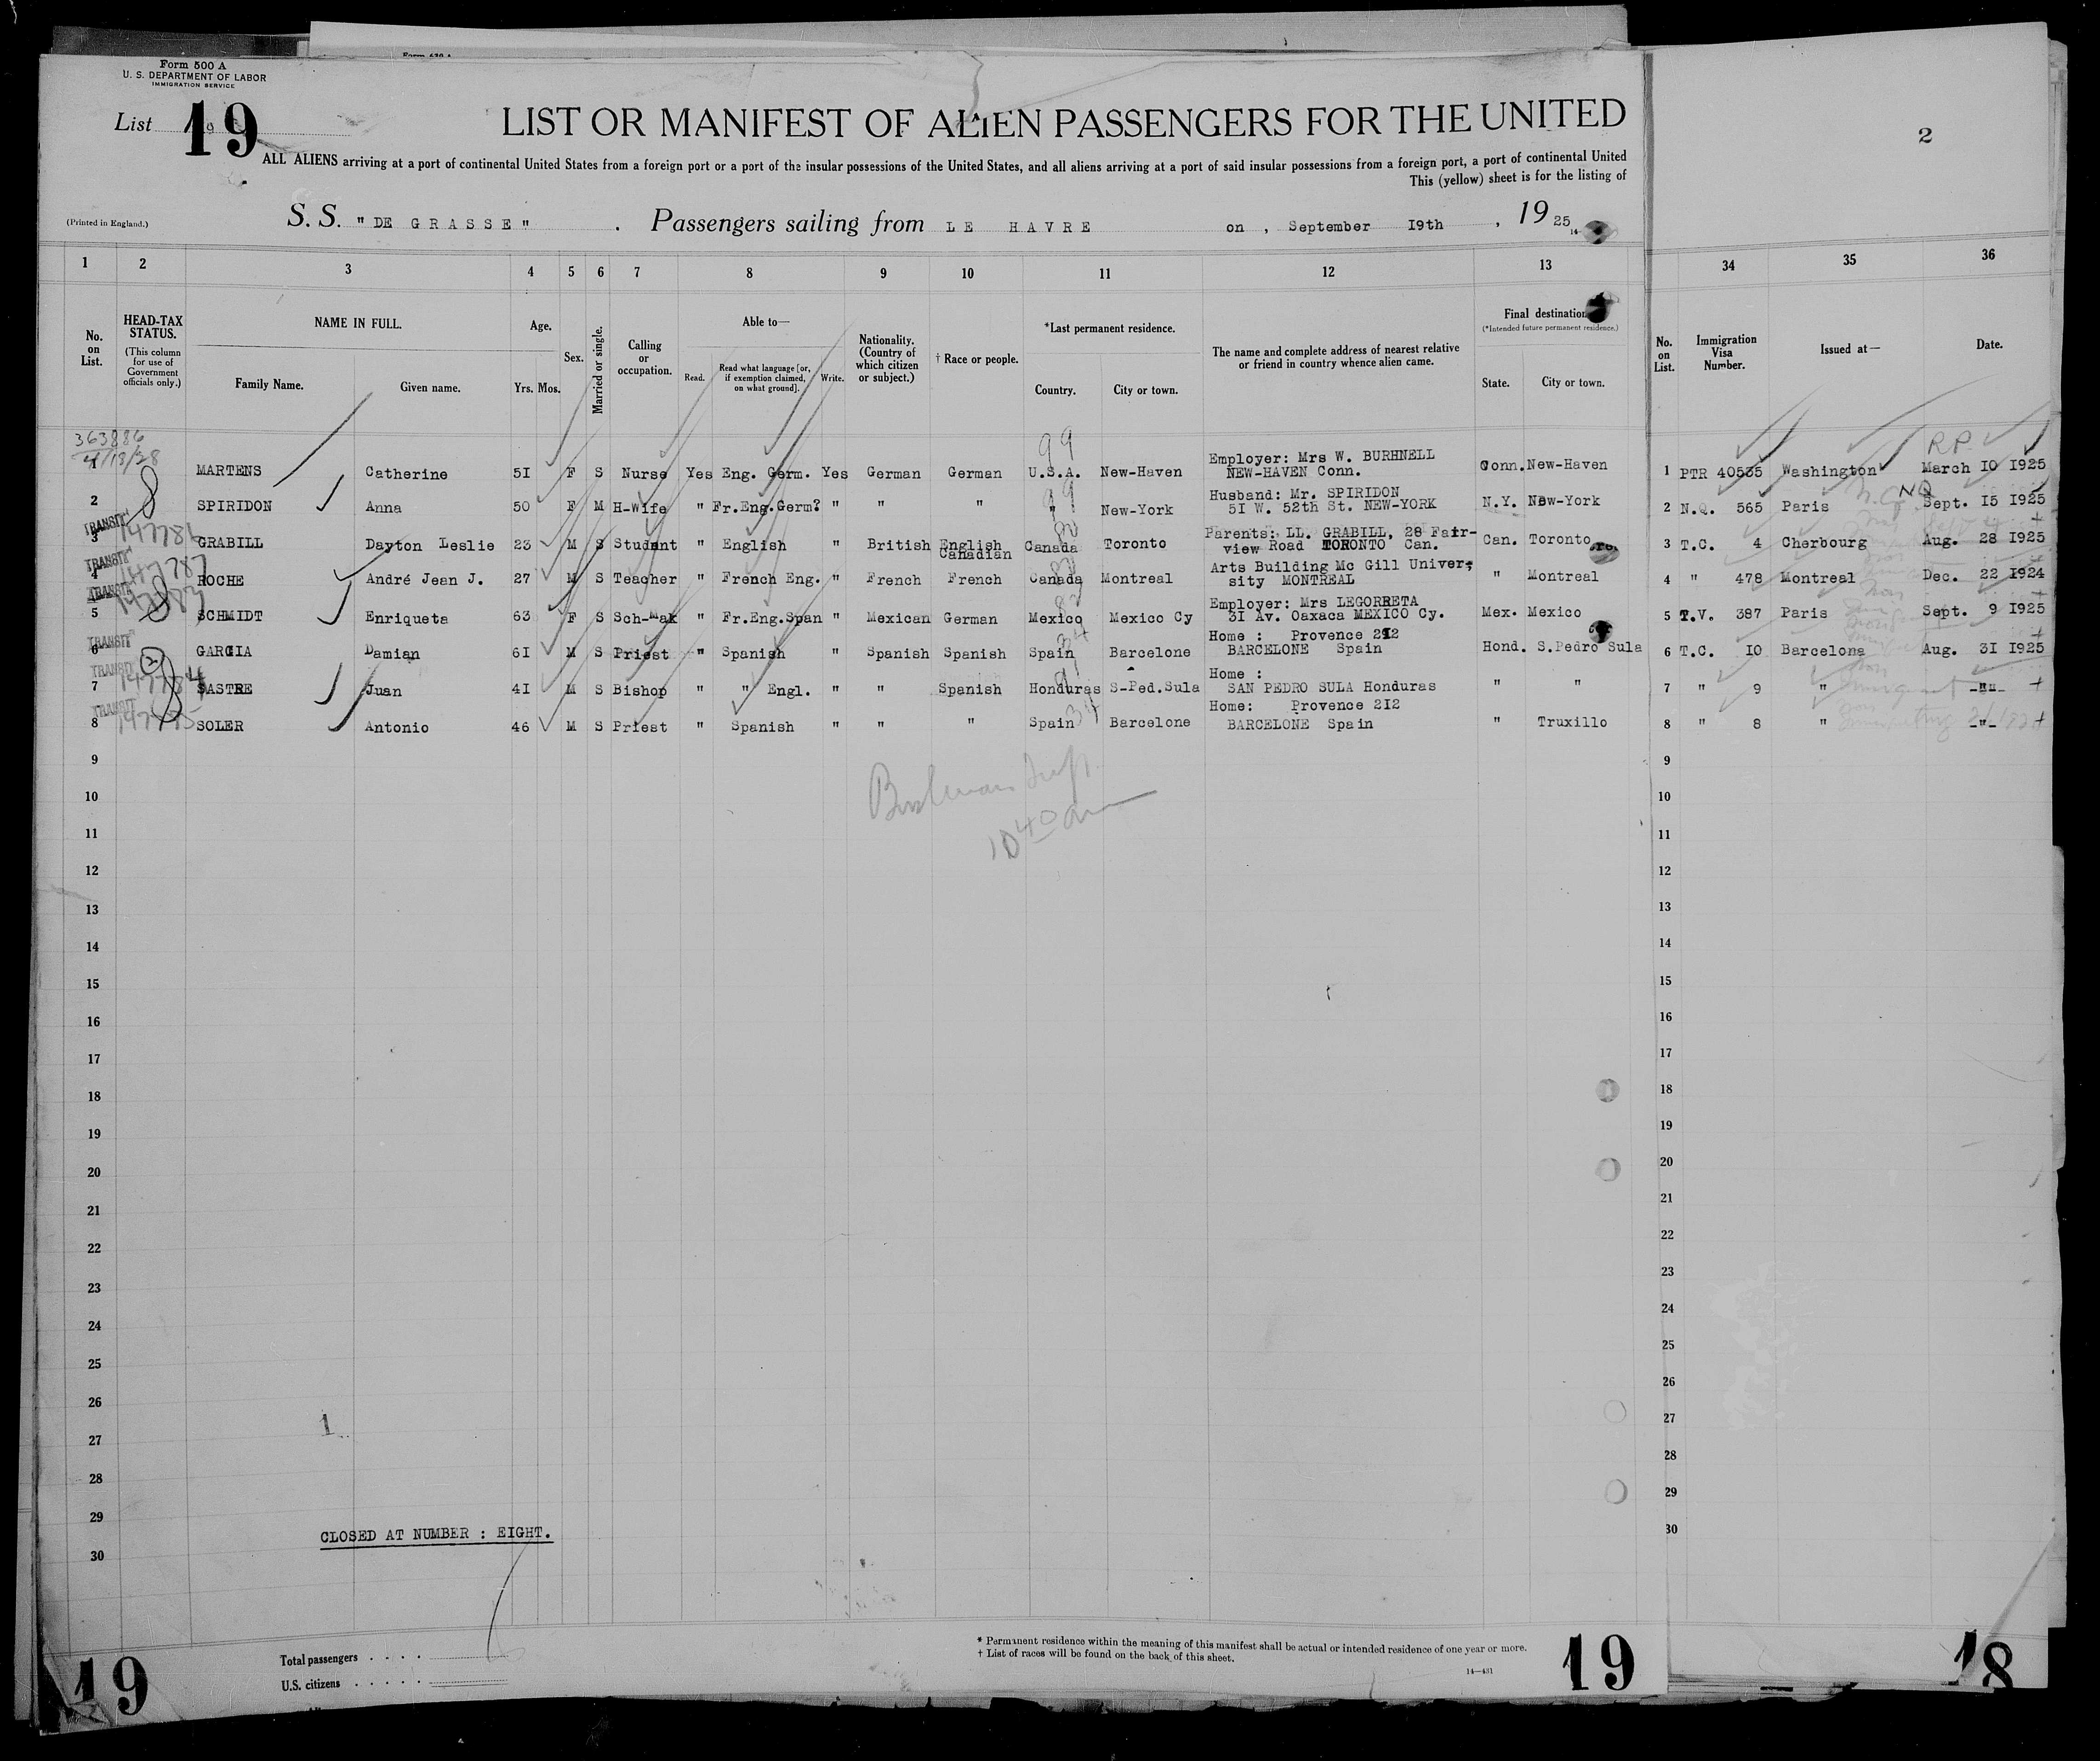 Form 500 A
U. S. DEPARTMENT OF LABOR
IMMIGRATION SERVICE
List 19
LIST OR MANIFEST OF ALIEN PASSENGERS FOR THE UNITED
2
ALL ALIENS arriving at a port of continental United States from a foreign port or a port of the insular possessions of the United States, and all aliens arriving at a port of said insular possessions from a foreign port, a port of continental United
This (yellow) sheet is for the listing of
(Printed in England.)
S. S. "DE GRASSE". Passengers sailing from LE HAVRE on, September I9th, 1925
1 2 3 4 5 6 7 8 9 10 11 12 13 34 35 36
No. on List.
HEAD-TAX STATUS.
(This column for use of Government officials only.)
NAME IN FULL.
Family Name. Given name.
Age.
Yrs. Mos.
Sex.
Married or single.
Calling or occupation.
Able to—
Read. Read what language [or, if exemption claimed, on what ground]. Write.
Nationality. (Country of which citizen or subject.)
† Race or people.
*Last permanent residence.
Country. City or town.
The name and complete address of nearest relative or friend in country whence alien came.
Final destination
(*Intended future permanent residence.)
State. City or town.
No. on List.
Immigration Visa Number.
Issued at—
Date.
363886
4/18/28
99
R.P.
1 MARTENS Catherine 5I F S Nurse Yes Eng. Germ. Yes German German U.S.A. New-Haven Employer: Mrs W. BURHNELL NEW-HAVEN Conn. Conn. New-Haven 1 PTR 40535 Washington March IO I925
2 SPIRIDON Anna 50 F M H-Wife " Fr.Eng.Germ? " " " " New-York Husband: Mr. SPIRIDON 5I W. 52th St. NEW-YORK N.Y. New-York 2 N.Q. 565 Paris NQ Sept. I5 I925
TRANSIT 147786
3 GRABILL Dayton Leslie 23 M S Student " English " British English Canadian Canada Toronto Parents: LL. GRABILL, 28 Fair-view Road TORONTO Can. Can. Toronto 3 T.C. 4 Cherbourg Aug. 28 I925
TRANSIT 147787
4 ROCHE André Jean J. 27 M S Teacher " French Eng. " French French Canada Montreal Arts Building Mc Gill Univer-sity MONTREAL " Montreal 4 " 478 Montreal Dec. 22 I924
TRANSIT
5 SCHMIDT Enriqueta 63 F S Sch-Mak " Fr.Eng.Span " Mexican German Mexico Mexico Cy Employer: Mrs LEGORRETA 3I Av. Oaxaca MEXICO Cy. Mex. Mexico 5 T.V. 387 Paris Sept. 9 I925
TRANSIT
6 GARCIA Damian 6I M S Priest " Spanish " Spanish Spanish Spain Barcelone Home : Provence 2I2 BARCELONE Spain Hond. S.Pedro Sula 6 T.C. IO Barcelona Aug. 3I I925
TRANSIT 2 147784
7 SASTRE Juan 4I M S Bishop " " Engl. " " Spanish Honduras S-Ped.Sula Home : SAN PEDRO SULA Honduras " " 7 " 9 " -""-
TRANSIT
8 SOLER Antonio 46 M S Priest " Spanish " " " Spain Barcelone Home: Provence 2I2 BARCELONE Spain " Truxillo 8 " 8 " -"-
9 9
10 10
10 40 am
11 11
12 12
13 13
14 14
15 15
16 16
17 17
18 18
19 19
20 20
21 21
22 22
23 23
24 24
25 25
26 26
27 27
28 28
29 29
CLOSED AT NUMBER : EIGHT.
30 30
Total passengers . . . .
U.S. citizens . . . . .
* Permanent residence within the meaning of this manifest shall be actual or intended residence of one year or more.
† List of races will be found on the back of this sheet.
14—431
19 19 18